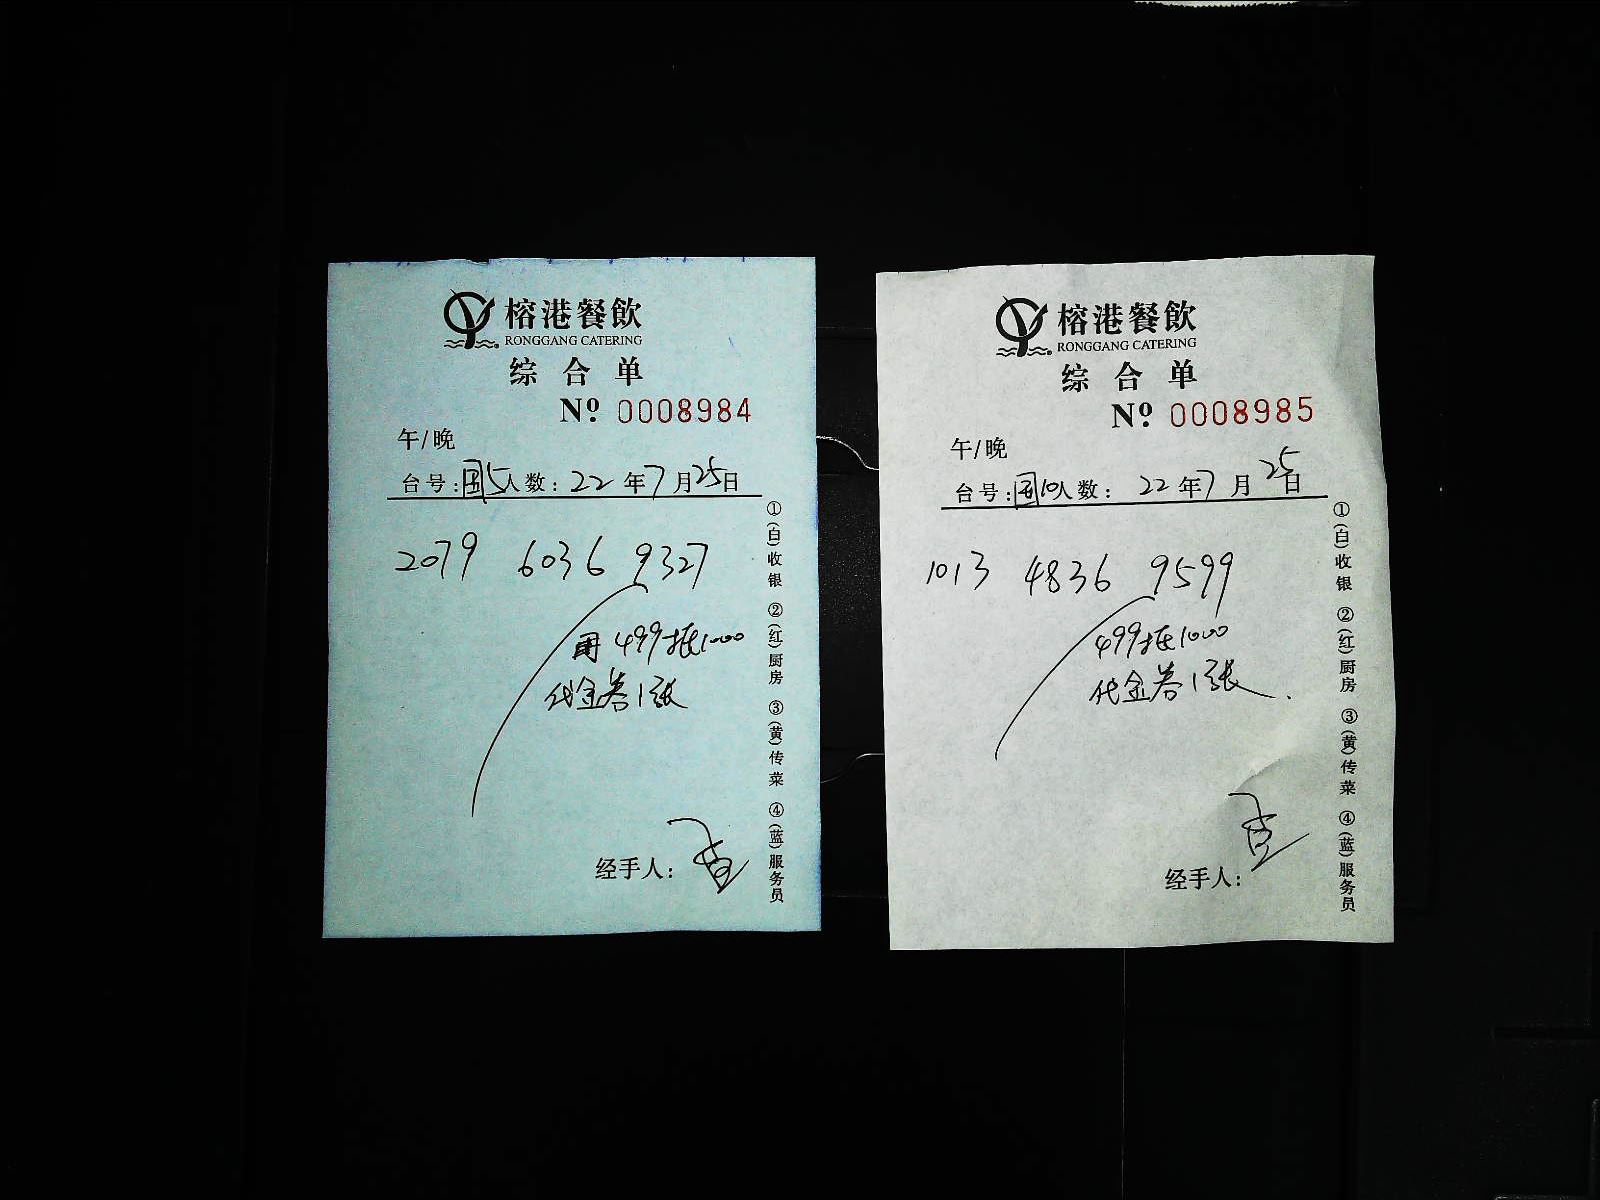 榕港餐飲
RONGGANG CATERING
综合单
Nº 0008984
午/晚
台号:国5人数: 22年7月25日
2079 6036 9327
用 499抵1000
代金券1张
经手人:
①(白)收银 ②(红)厨房 ③(黄)传菜 ④(蓝)服务员
榕港餐飲
RONGGANG CATERING
综合单
Nº 0008985
午/晚
台号:国10人数: 22年7月25日
1013 4836 9599
499抵1000
代金券1张.
经手人:
①(白)收银 ②(红)厨房 ③(黄)传菜 ④(蓝)服务员